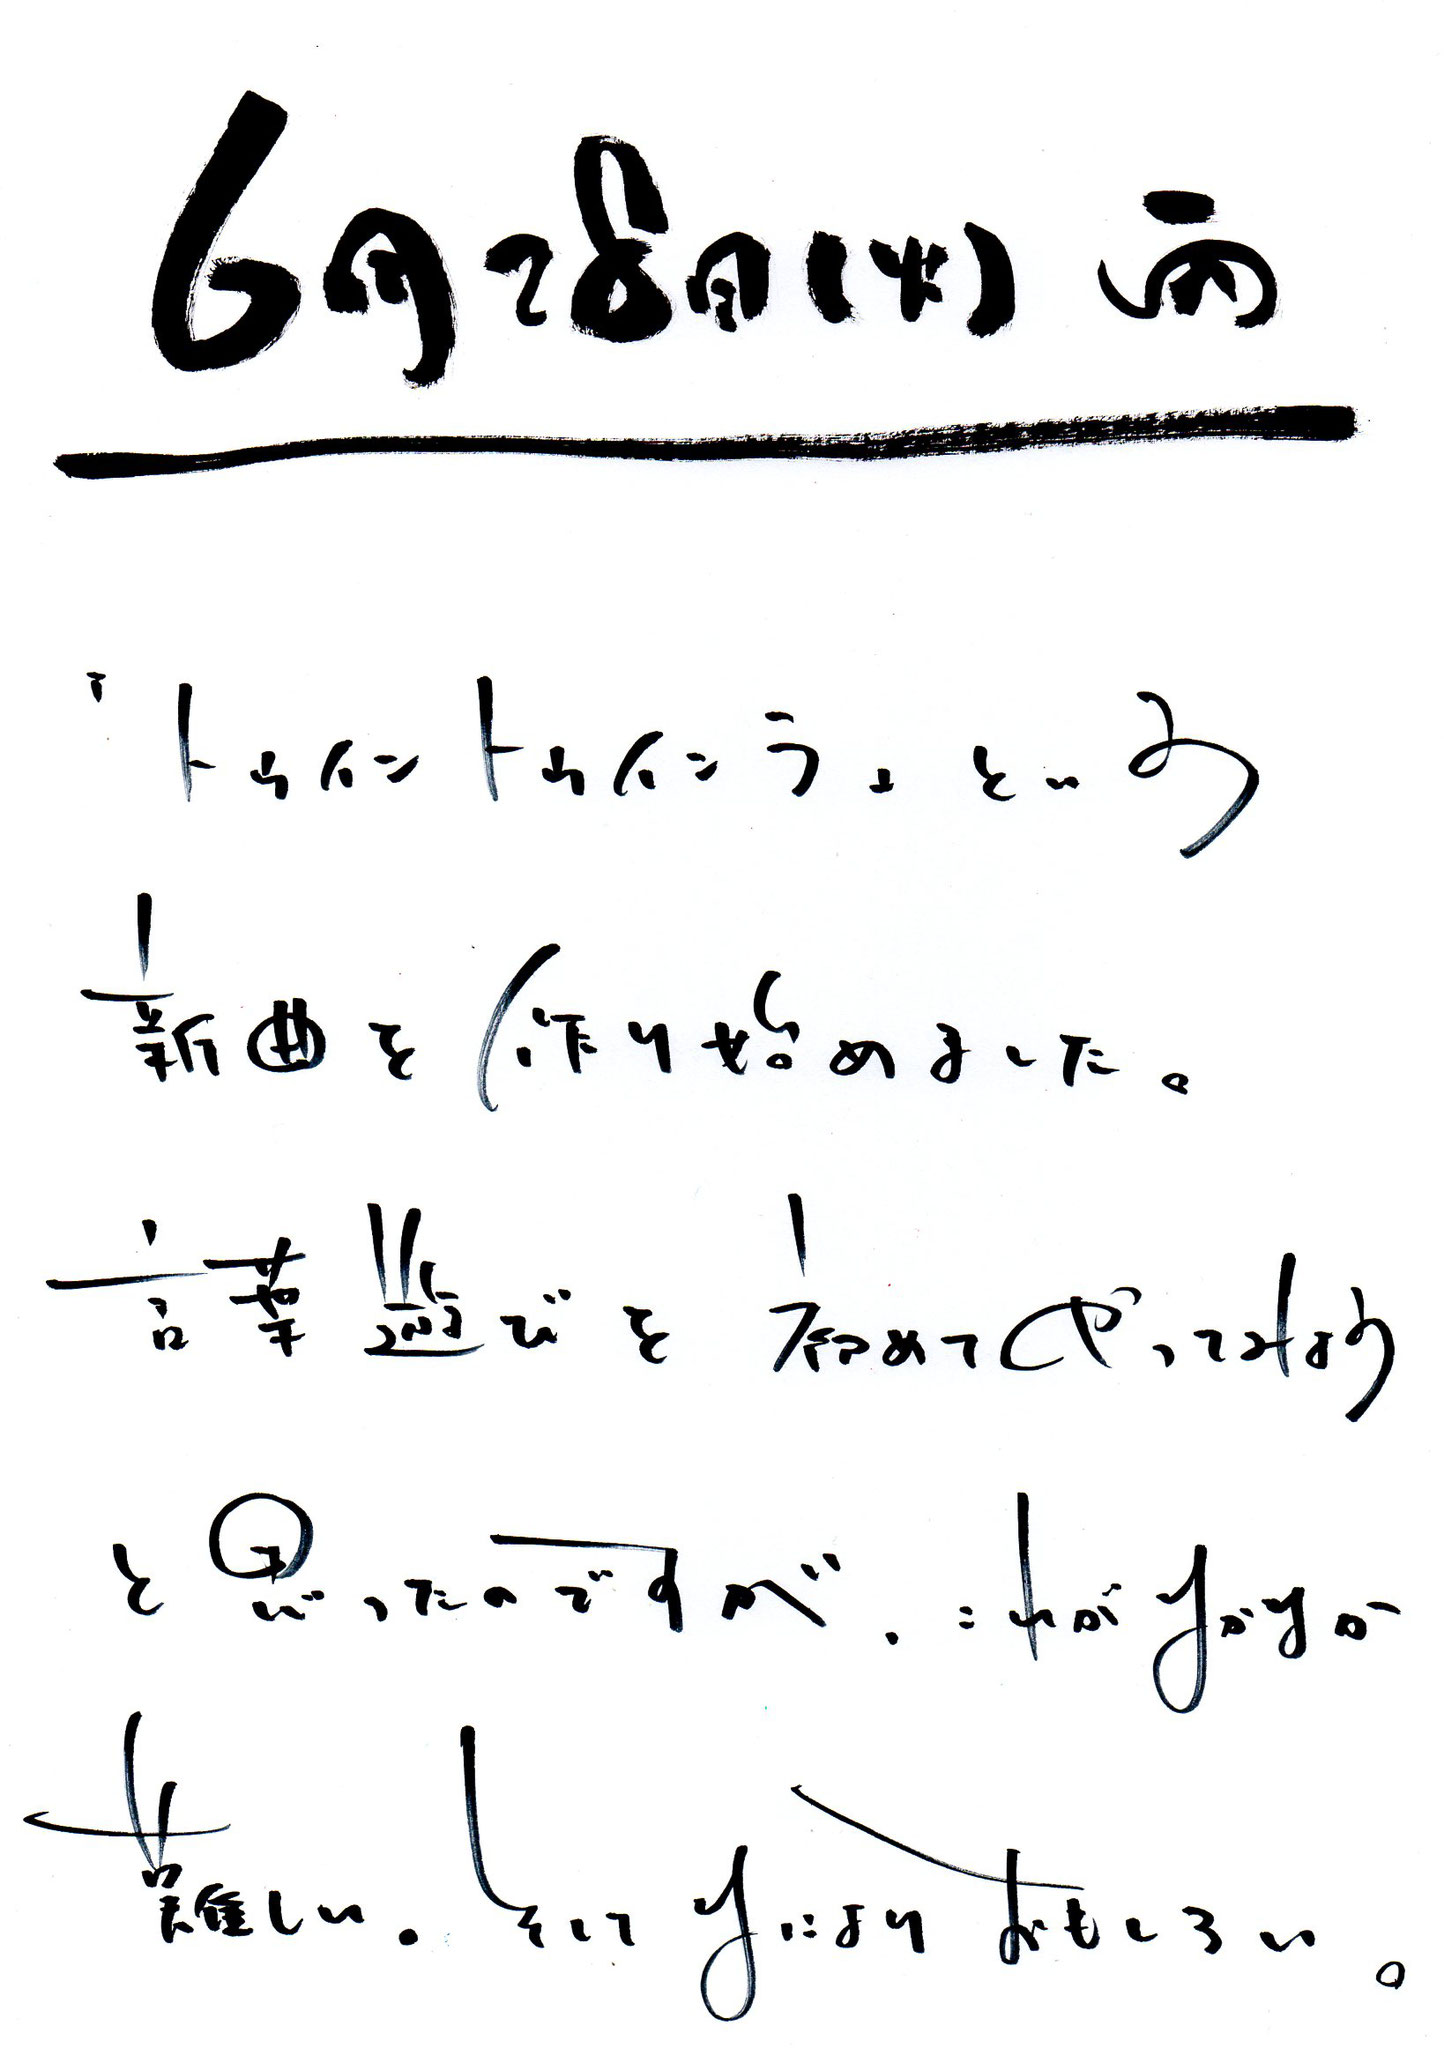 6月28日(火) 雨
「トゥイントゥインラ」という
新曲を作り始めました。
言葉遊びを初めてやってみよう
と思ったのですが、これがなかなか
難しい。そしてなによりおもしろい。